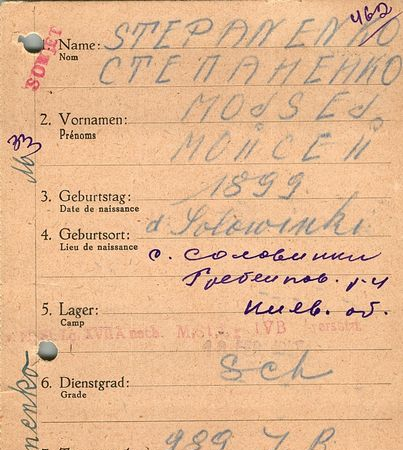 462
SOWJET
1. Name: STEPANENKO
Nom
СТЕПАНЕНКО
2. Vornamen: MOJSEJ
Prénoms
МОЙСЕЙ
3. Geburtstag: 1899
Date de naissance
4. Geburtsort: d Solowinki
Lieu de naissance
с. Соловинки
Гребенков. р-н
Киев. об.
5. Lager:
Camp
XVII A nach. M. St. IVB
6. Dienstgrad: Sch
Grade
nenko